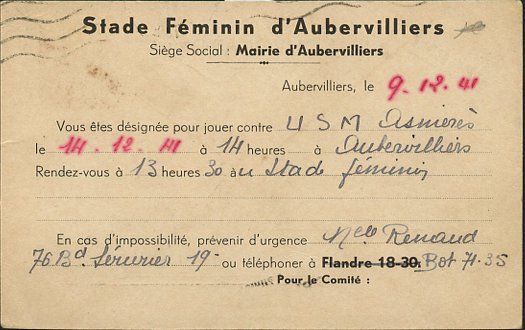 Stade Féminin d'Aubervilliers
Siège Social : Mairie d'Aubervilliers
Aubervilliers, le 9.12.41
Vous êtes désignée pour jouer contre USM Asnières
le 14.12.41 à 14 heures à Aubervilliers
Rendez-vous à 13 heures 30 au Stade féminin
En cas d'impossibilité, prévenir d'urgence Melle Renaud
76 Bd Sérurier 19e ou téléphoner à Flandre 18-30. Bot 71-35
Pour le Comité :